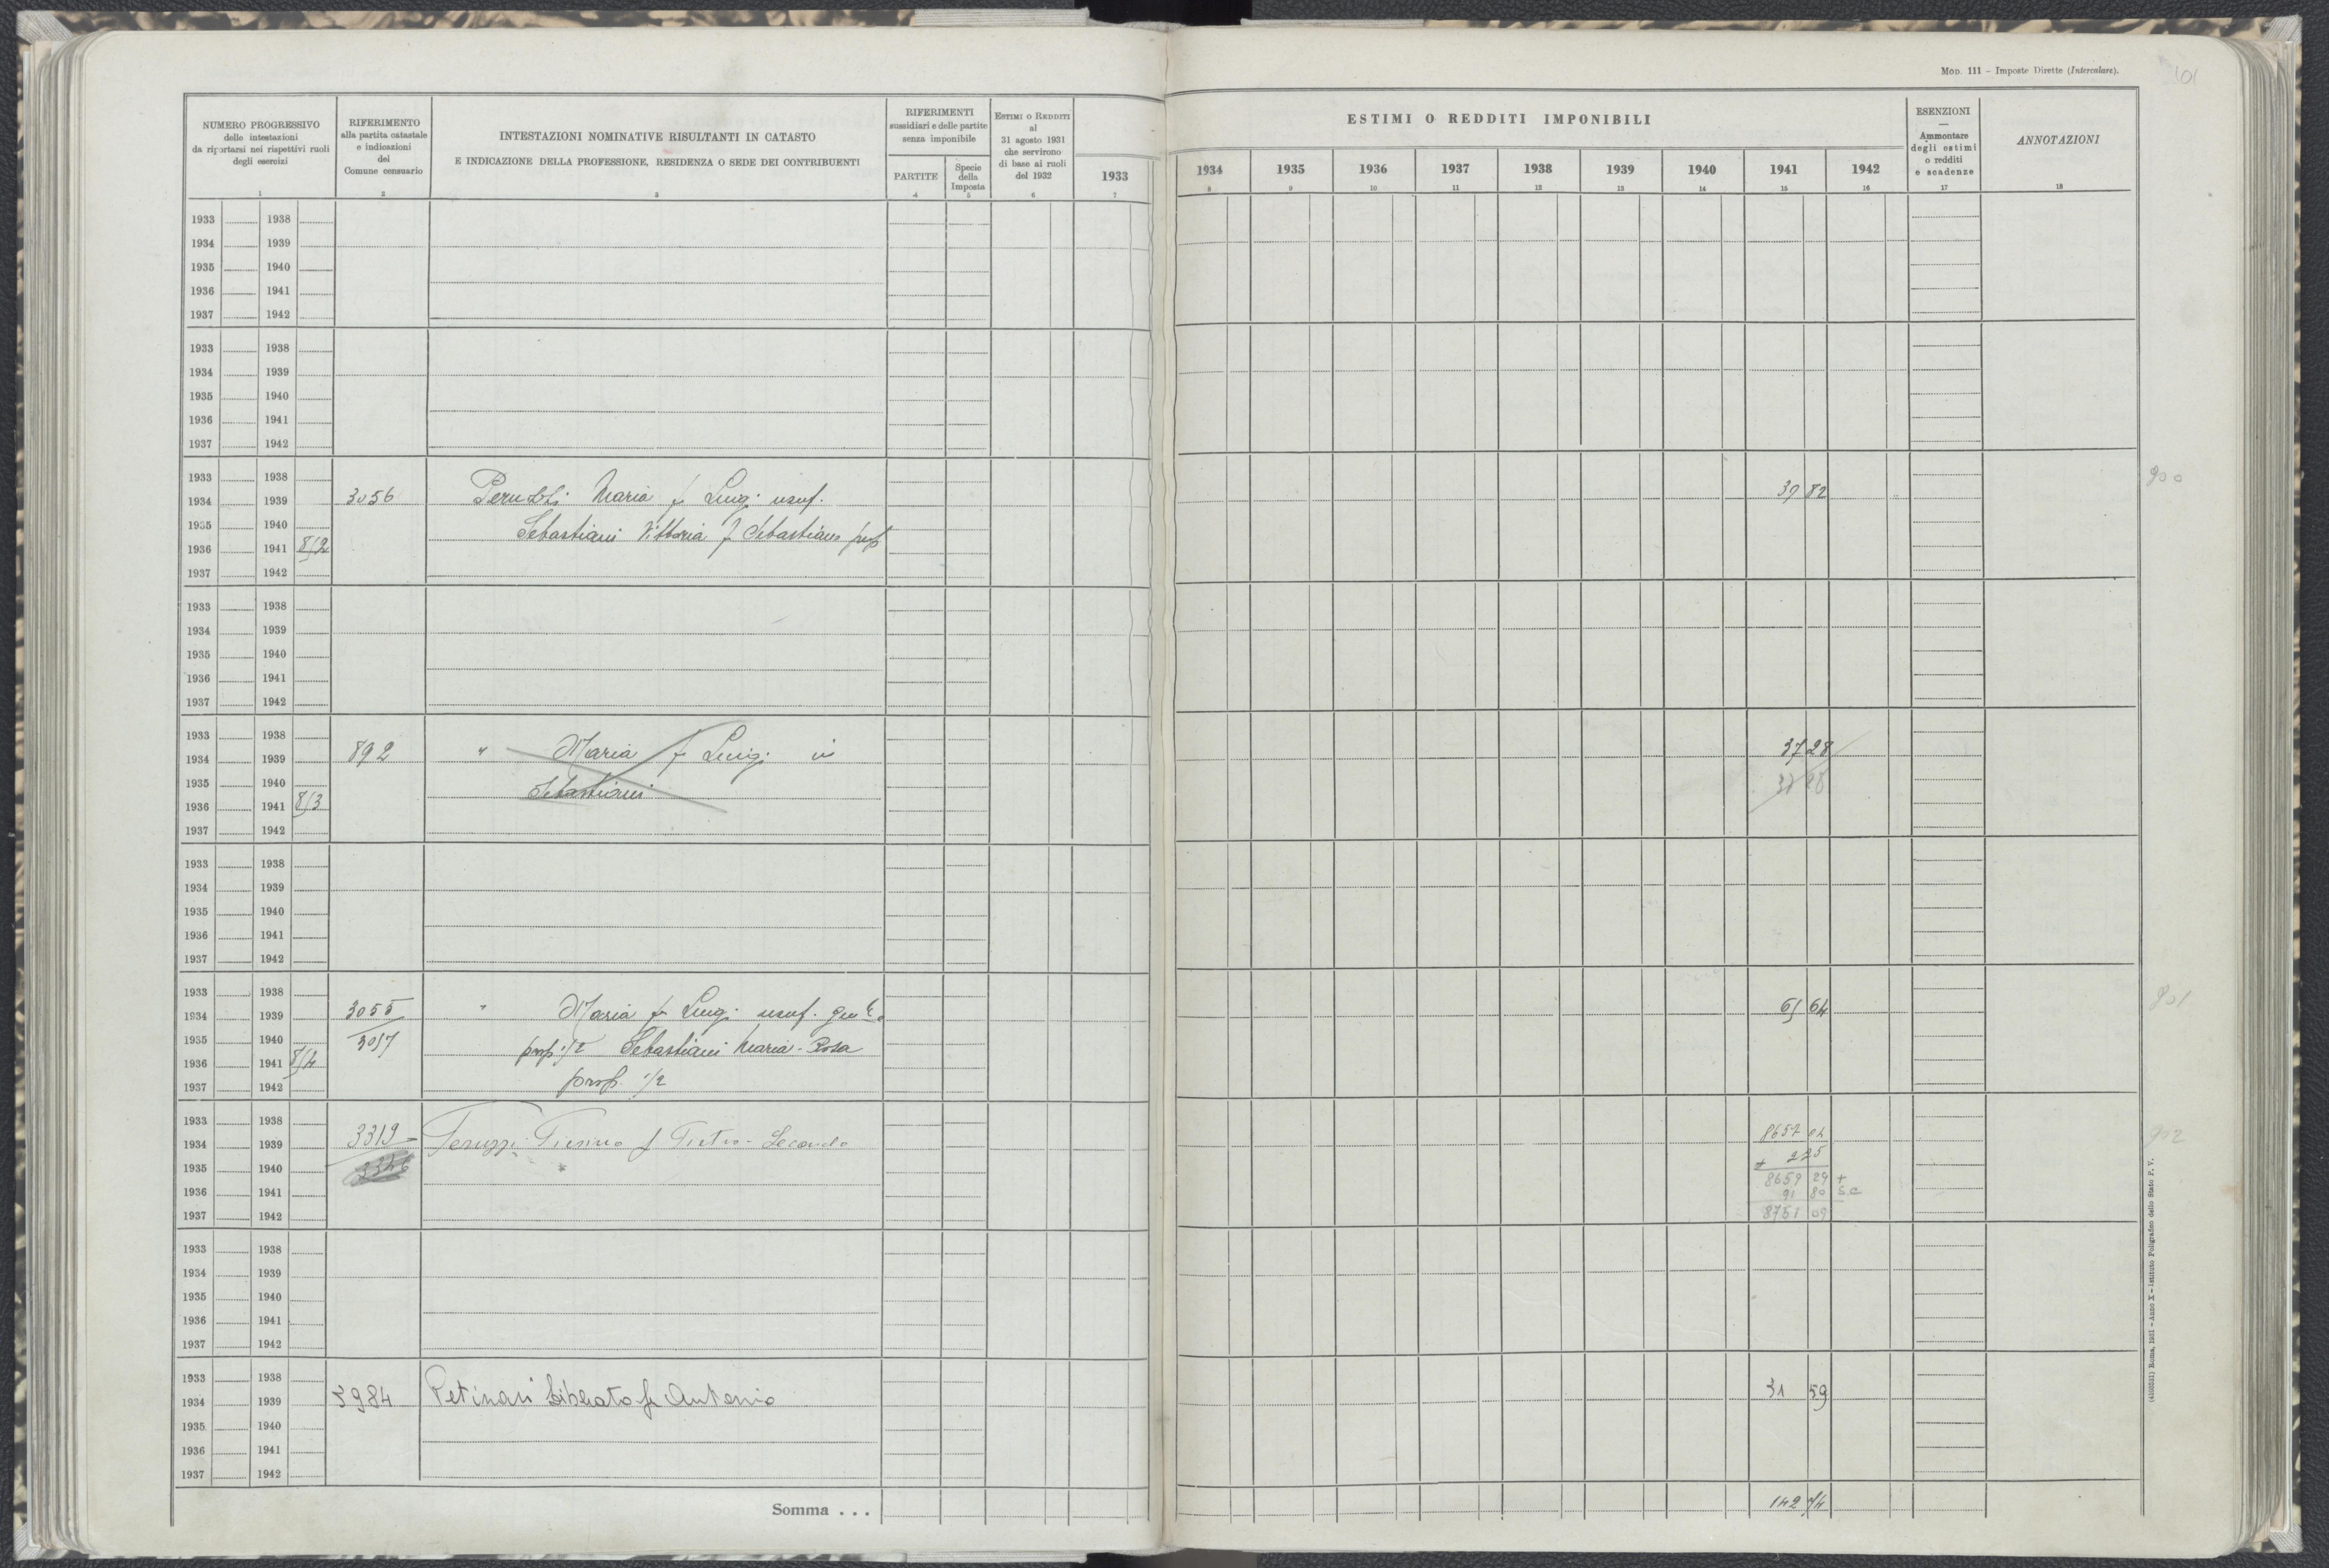 MOD. 111 – Imposte Dirette (Intercalare).
101
NUMERO PROGRESSIVO
delle intestazioni
da riportarsi nei rispettivi ruoli
degli esercizi
1
RIFERIMENTO
alla partita catastale
e indicazioni
del
Comune censuario
2
INTESTAZIONI NOMINATIVE RISULTANTI IN CATASTO
E INDICAZIONE DELLA PROFESSIONE, RESIDENZA O SEDE DEI CONTRIBUENTI
3
RIFERIMENTI
sussidiari e delle partite
senza imponibile
PARTITE
4
Specie
della
Imposta
5
ESTIMI O REDDITI
al
31 agosto 1931
che servirono
di base ai ruoli
del 1932
6
1933
7
ESTIMI O REDDITI IMPONIBILI
1934 1935 1936 1937 1938 1939 1940 1941 1942
8 9 10 11 12 13 14 15 16
ESENZIONI
—
Ammontare
degli estimi
o redditi
e scadenze
17
ANNOTAZIONI
18
1933 1938
1934 1939
1935 1940
1936 1941
1937 1942
1933 1938
1934 1939
1935 1940
1936 1941
1937 1942
1933 1938
1934 1939 3056 Peruzzi Maria f Luigi usuf. 39 82
900
1935 1940 Sebastiani Vittoria f Sebastiano prop
1936 1941 812
1937 1942
1933 1938
1934 1939
1935 1940
1936 1941
1937 1942
1933 1938
1934 1939 892 " Maria f Luigi in 37 28
1935 1940 Sebastiani
1936 1941 813
1937 1942
1933 1938
1934 1939
1935 1940
1936 1941
1937 1942
1933 1938
1934 1939 3055 " Maria f Luigi usuf. 65 64
901
1935 1940 prop 1/2 Sebastiani Maria-Rosa
1936 1941 814
1937 1942 prop. 1/2
1933 1938
1934 1939 3319 Peruzzi f Pietro-Secondo 8657 04
902
1935 1940 + 2 25
1936 1941 8659 29 +
91 80 S.C
1937 1942 8751 09
1933 1938
1934 1939
1935 1940
1936 1941
1937 1942
1933 1938
1934 1939 3984 Petinari Liberato fu Antonio 31 59
1935 1940
1936 1941
1937 1942
Somma . . . 142 74
(4103531) Roma, 1931 – Anno X – Istituto Poligrafico dello Stato P. V.